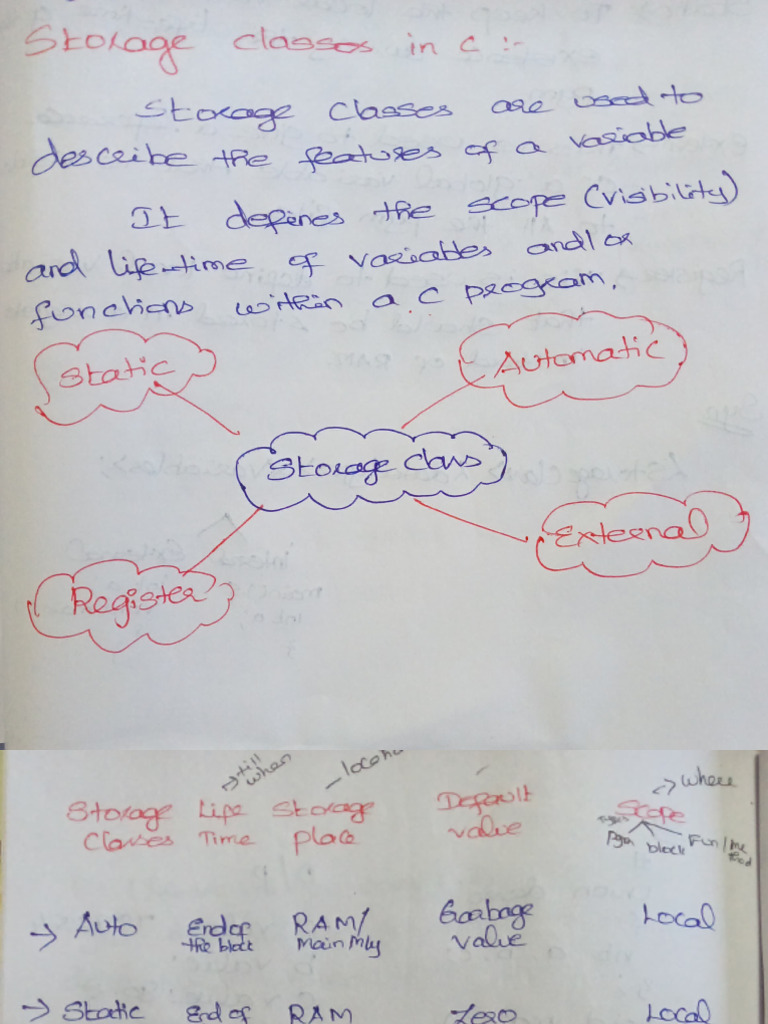 Storage classes in c :-
Storage classes are used to
describe the features of a variable
It defines the scope (visibility)
and life-time of variables and/or
functions within a C program.
Static
Automatic
Storage Class
External
Register
→ till when
Where
Storage Classes
Life Time
Storage place
Default value
Scope
block
Fun/method
→ Auto
End of the block
RAM/
Garbage value
Local
→ Static
End of
RAM
Zero
Local